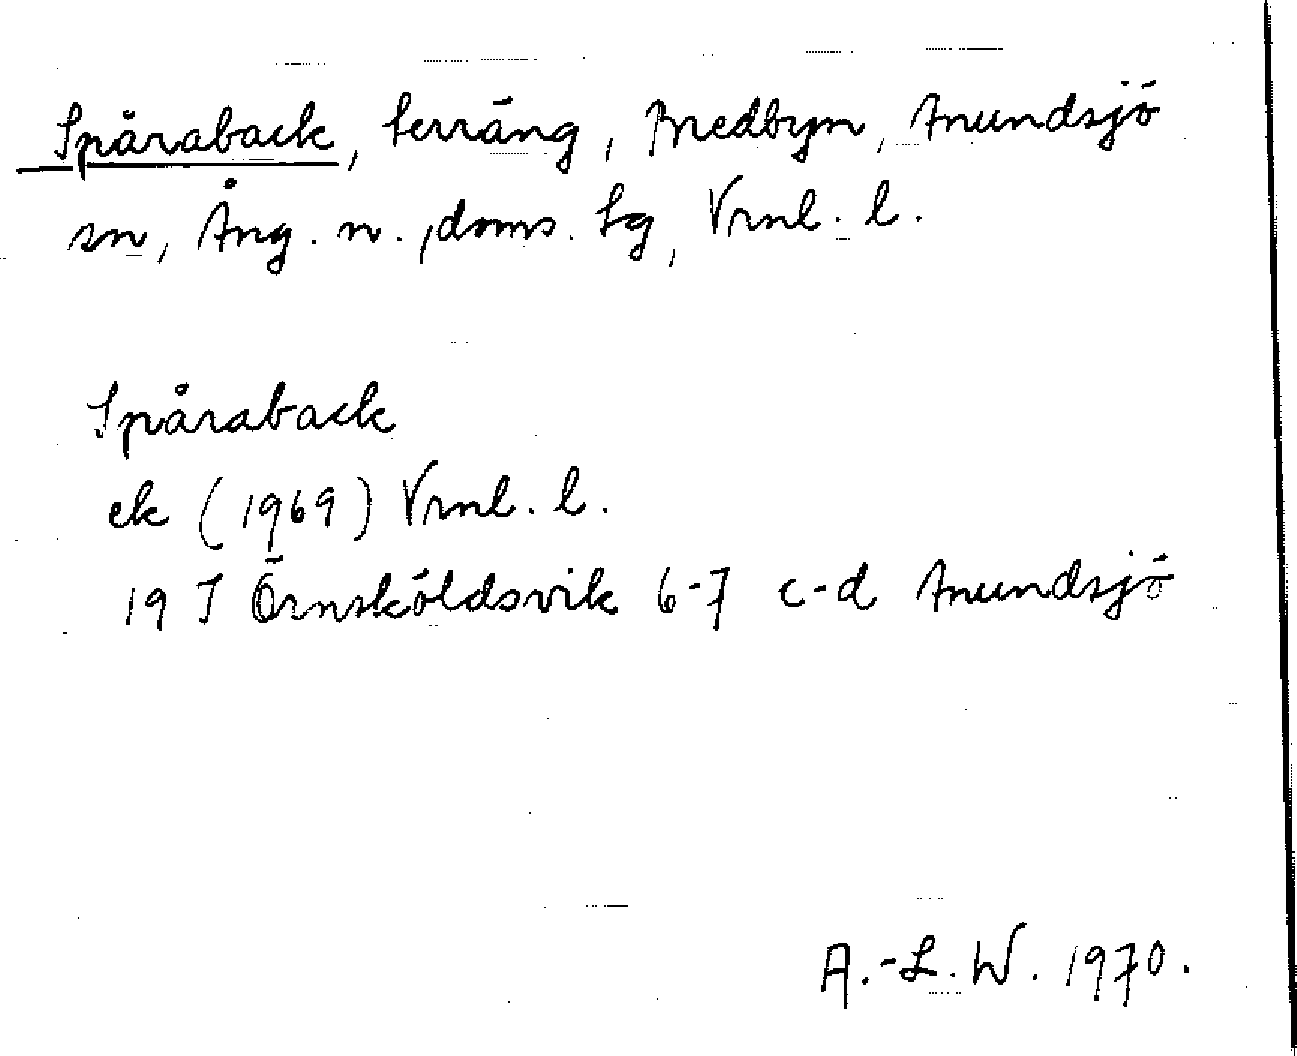 Spåraback, terräng, Bredbyn, Anundsjö
sn, Ång. n., doms. tg, Vrnl. l.
Spåraback
ek (1969) Vrnl. l.
19 I Örnsköldsvik 6-7 c-d Anundsjö
A.-L. W. 1970.